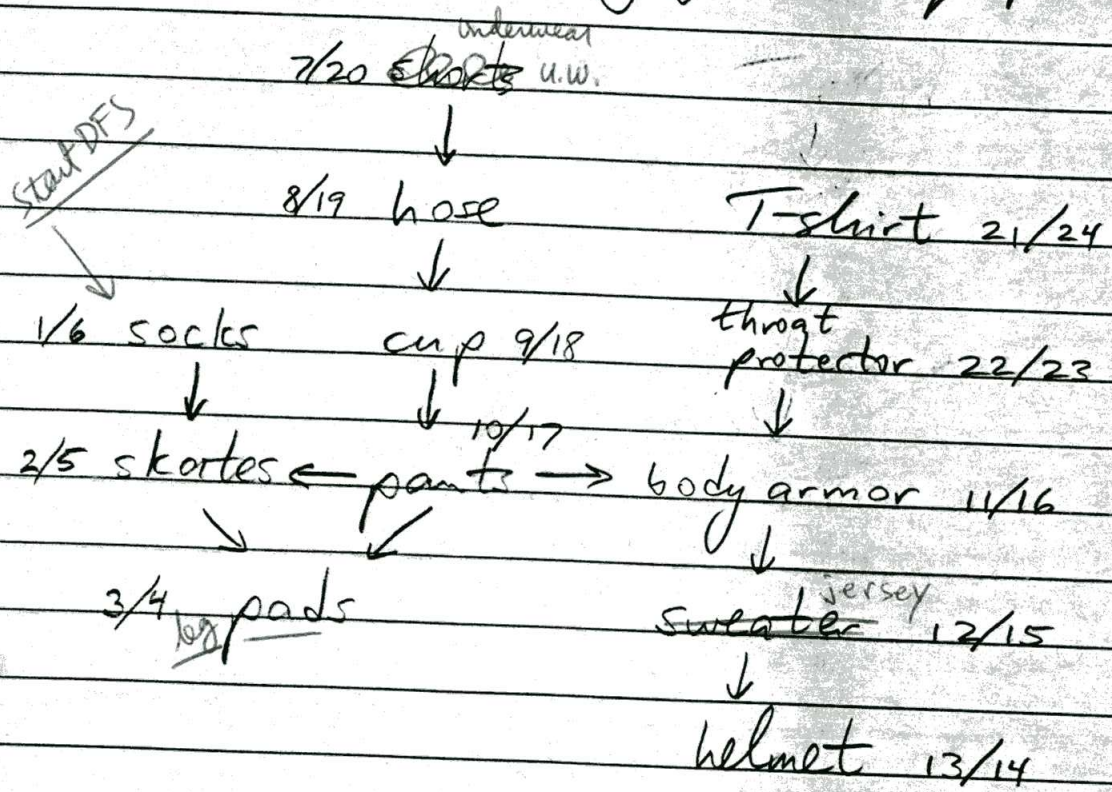 underwear
7/20 shorts u.w.
start DFS
8/19 hose
T-shirt 21/24
1/6 socks
cup 9/18
throat
protector 22/23
10/17
2/5 skates pants body armor 11/16
jersey
3/4 leg pads
sweater 12/15
helmet 13/14